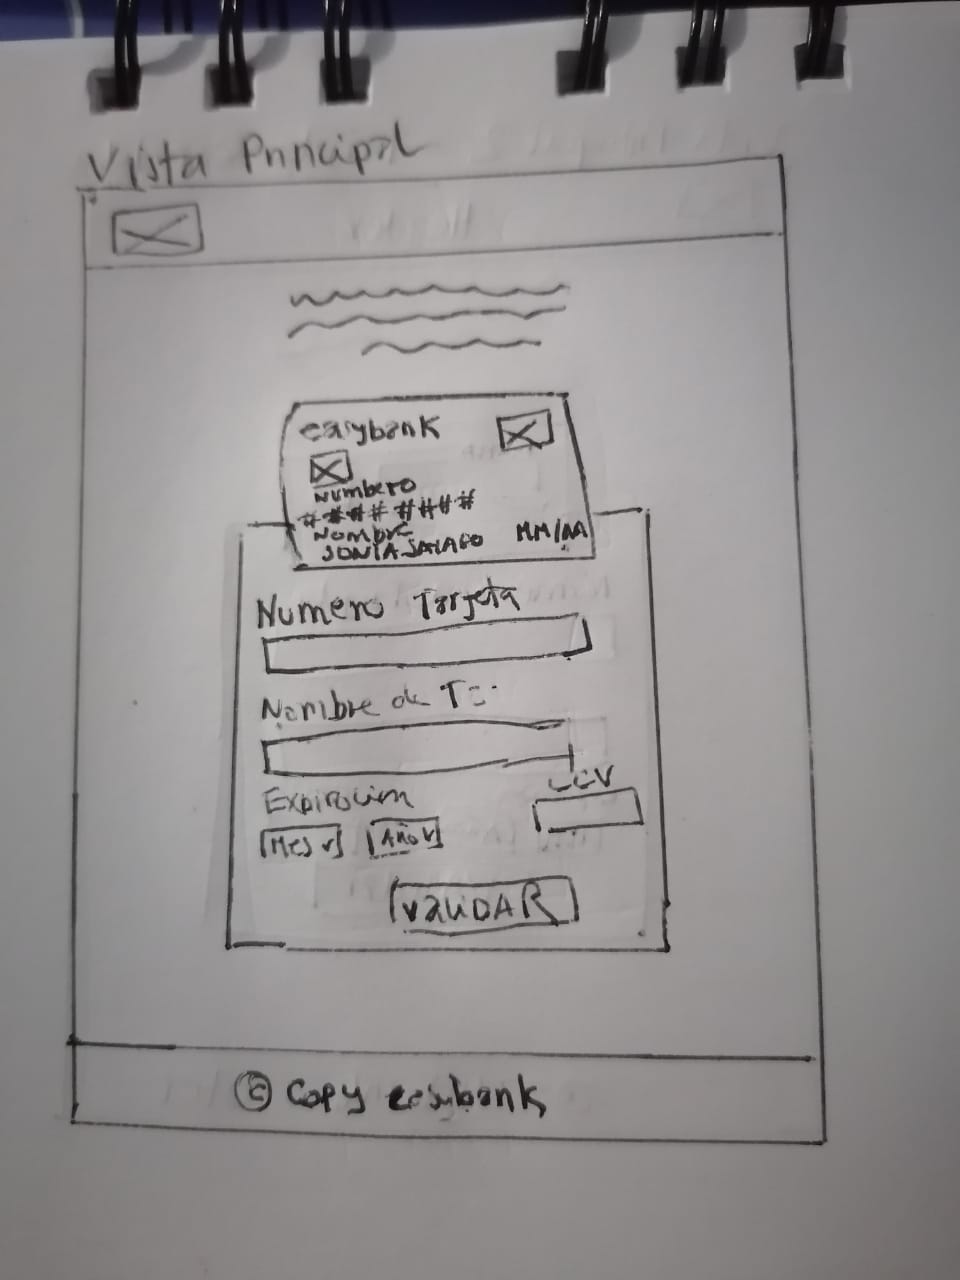 Vista Principal
easybank
Numbero
#### ####
Nombre
MM/AA
SONIA
Numero Tarjeta
Nombre de
CCV
Expiración
Mes v Año v
VALIDAR
© Copy easybank